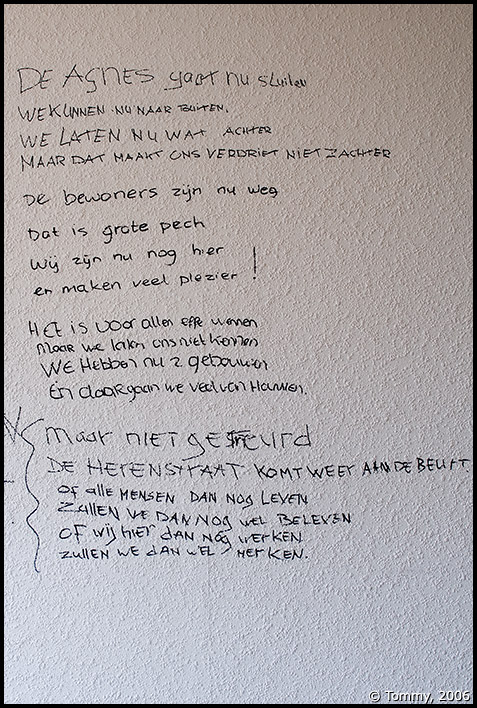 DE AGNES gaat nu sluiten
WE KUNNEN NU NAAR BUITEN.
WE LATEN NU WAT ACHTER
MAAR DAT MAAKT ONS VERDRIET NIET ZACHTER
De bewoners zijn nu weg
Dat is grote pech
Wij zijn nu nog hier
en maken veel plezier !
Het is voor allen effe wennen
maar we laten ons niet kennen
WE Hebben nu 2 gebouwen
En daar gaan we veel van Houwen.
maar niet getreurd
DE HERENSTRAAT KOMT WEER AAN DE BEURT
of alle MENSEN DAN NOG LEVEN
ZULLEN WE DAN NOG WEL BELEVEN
OF wij hier DAN NOG WERKEN
zullen WE dan WEL MERKEN.
© Tommy, 2006